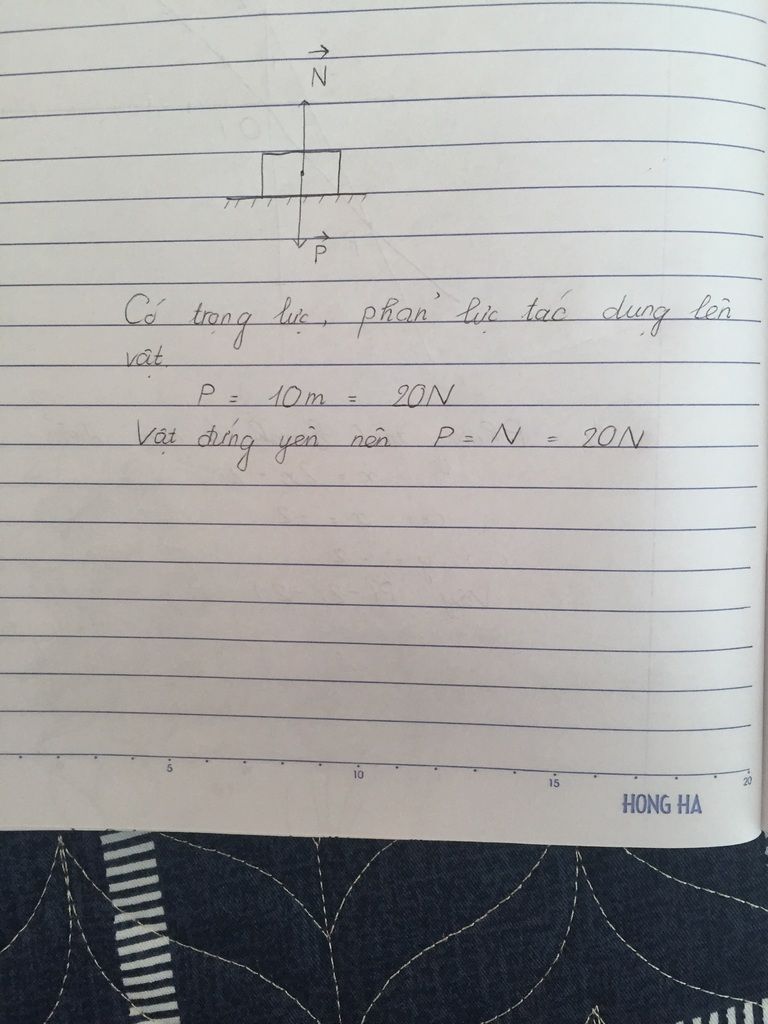 N
P
Có trọng lực, phản lực tác dụng lên
vật.
P = 10m = 20N
Vật đứng yên nên P = N = 20N
5 10 15 20
HONG HA